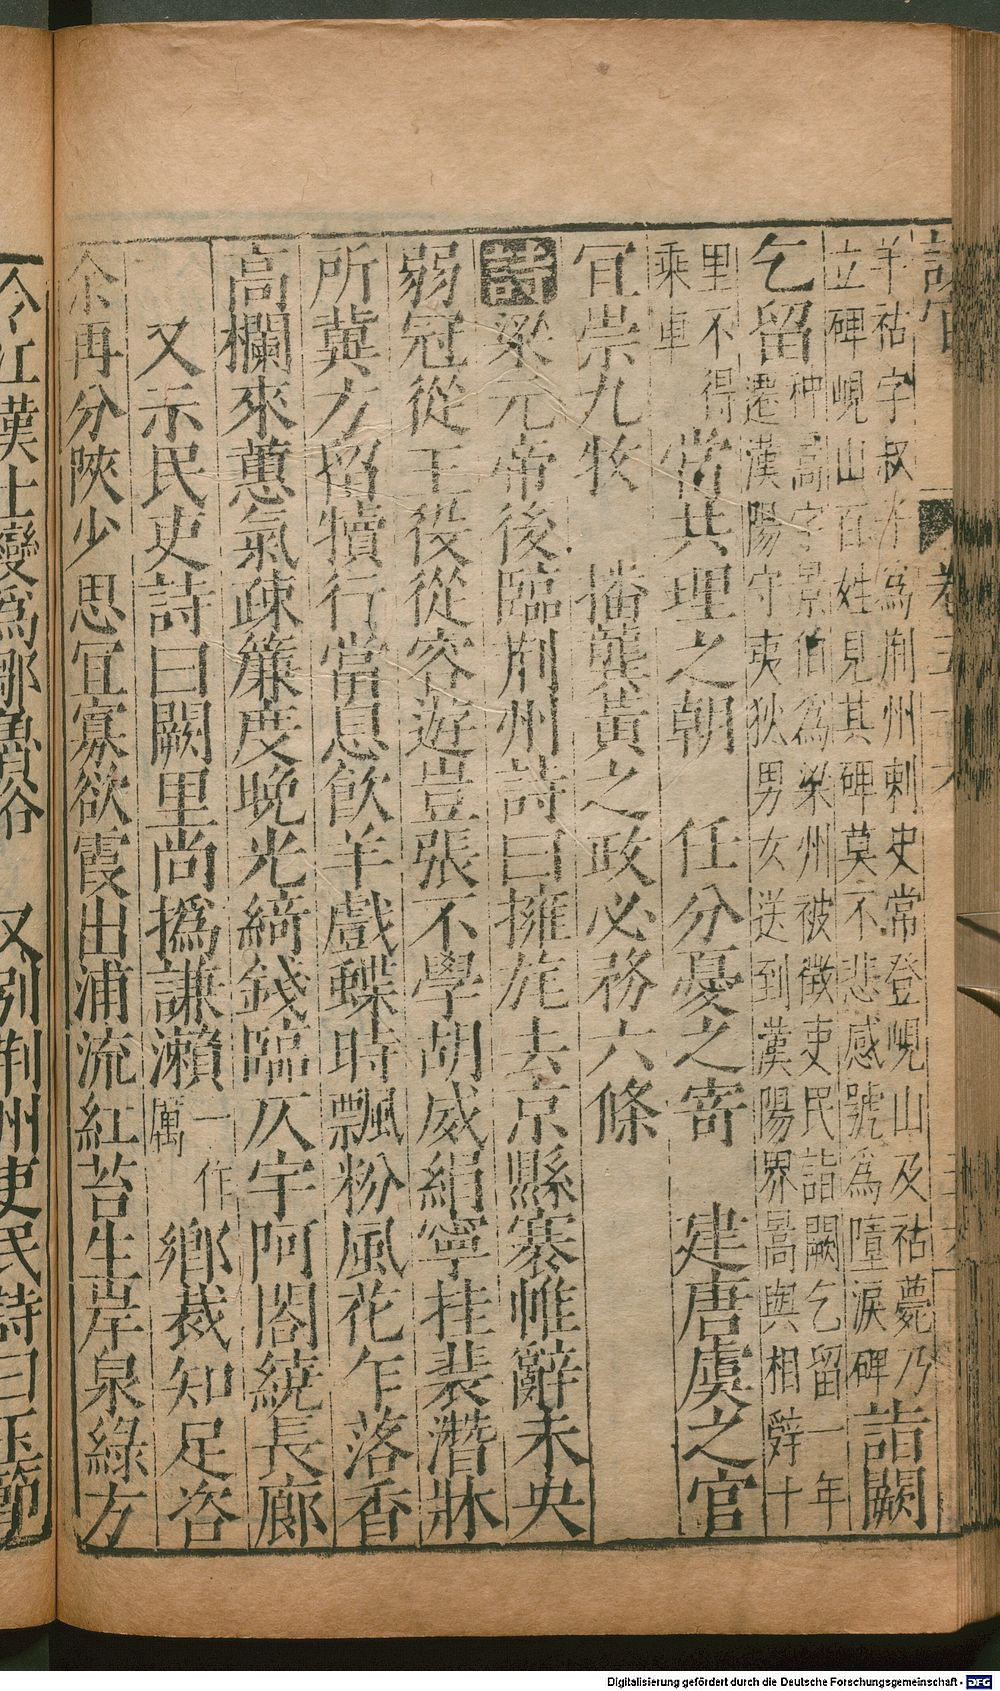 羊祜字叔子爲荆州刺史常登峴山及祜薨乃
立碑峴山百姓見其碑莫不悲感號爲墮淚碑
詣闕
乞留
种暠字景伯爲梁州被徵吏民詣闕乞留一年
遷漢陽守夷狄男女送到漢陽界暠與相辤十
里不得
乘車
常共理之朝 任分憂之寄 建唐虞之官
宜崇九牧 播龔黃之政必務六條
詩梁元帝後臨荆州詩曰擁旄去京縣褰帷辭未央
弱冠從王役從容遊豈張不學胡威絹寧挂裴潛牀
所冀方留犢行當息飲羊戲蝶時飄粉風花乍落香
高欄來蕙氣疎簾度晚光綺錢臨仄宇阿閣繞長廊
又示民吏詩曰闕里尚撝謙瀨一作厲鄉裁知足咨
余再分陝少思宜寡欲霞出浦流紅苔生岸泉綠方
令江漢士變爲鄒魯俗 又別荆州吏民詩曰玉節
Digitalisierung gefördert durch die Deutsche Forschungsgemeinschaft - DFG